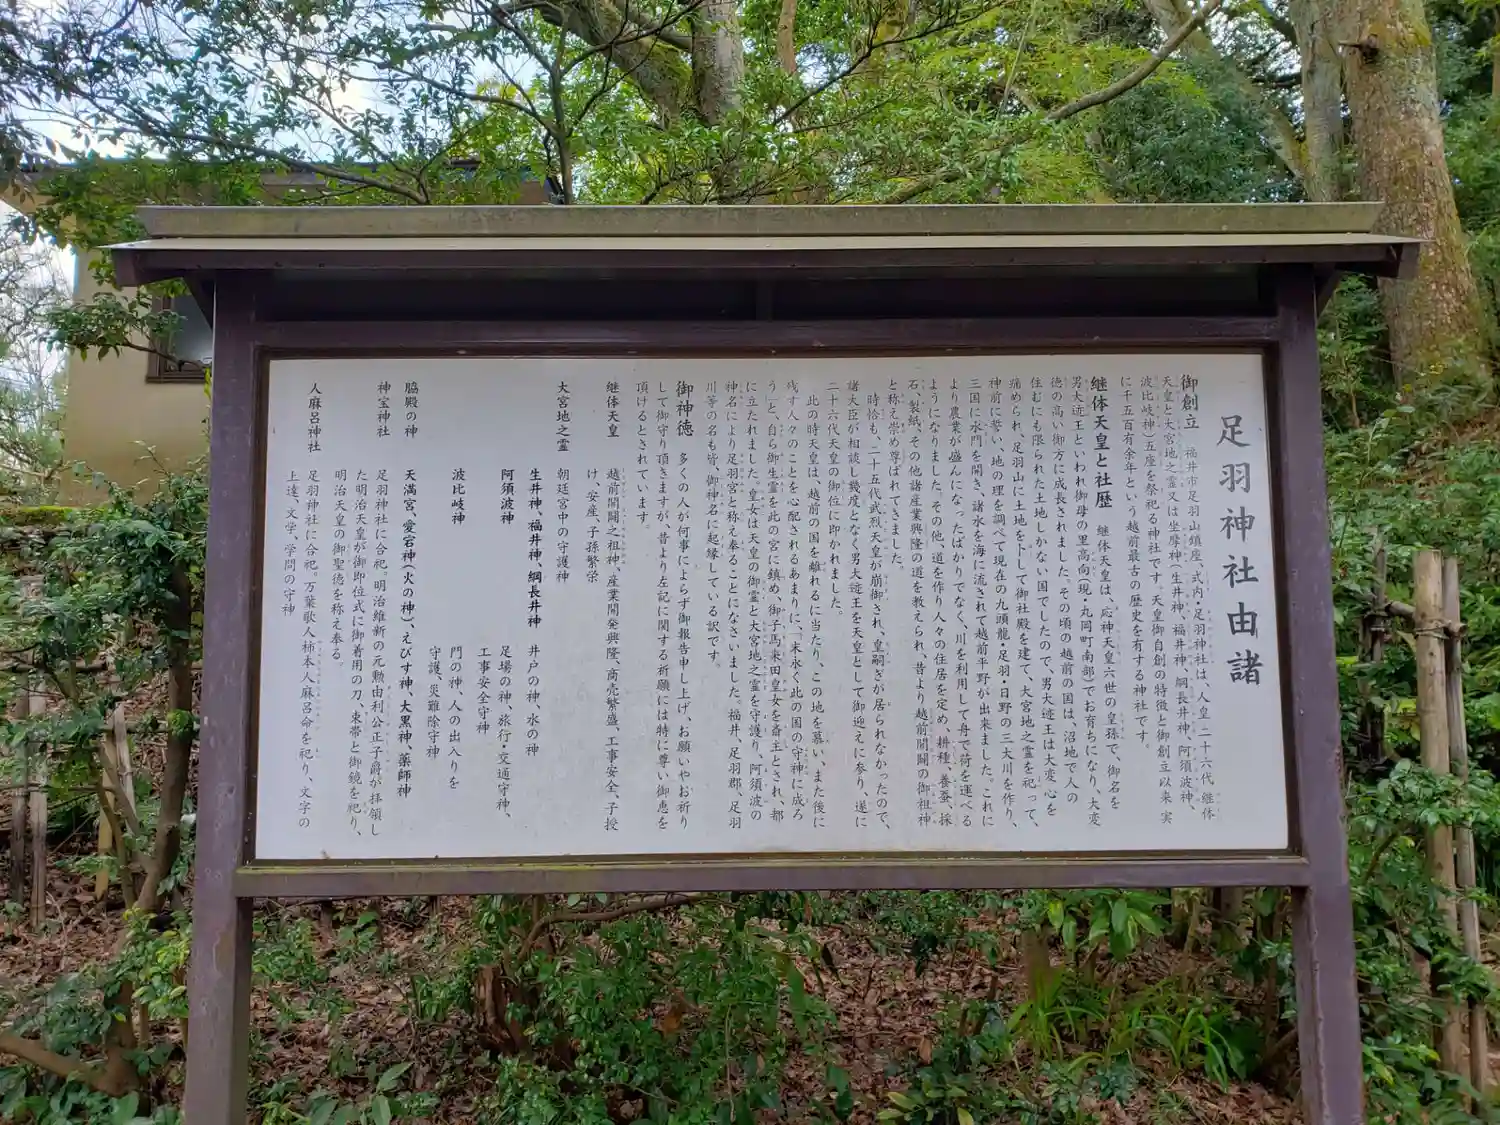 足羽神社由諸
御創立　福井市足羽山鎮座、式内・足羽神社は、人皇二十六代、継体
天皇と大宮地之霊又は坐摩神（生井神、福井神、綱長井神、阿須波神
波比岐神）五座を祭祀る神社です。天皇御自創の特徴と御創立以来 実
に千五百有余年という越前最古の歴史を有する神社です。
継体天皇と社歴　継体天皇は、応神天皇六世の皇孫で、御名を
男大迹王といわれ御母の里高向（現・丸岡町南部）でお育ちになり、大変
徳の高い御方に成長されました。その頃の越前の国は、沼地で人の
住むにも限られた土地しかない国でしたので、男大迹王は大変心を
痛められ、足羽山に土地を卜して御社殿を建て、大宮地之霊を祀って、
神前に誓い、地の理を調べて現在の九頭龍・足羽・日野の三大川を作り、
三国に水門を開き、諸水を海に流されて越前平野が出来ました。これに
より農業が盛んになったばかりでなく、川を利用して舟で荷を運べる
ようになりました。その他、道を作り人々の住居を定め、耕種、養蚕、採
石、製紙、その他諸産業興隆の道を教えられ、昔より越前開闢の御祖神
と称え崇め尊ばれてきました。
時恰も、二十五代武烈天皇が崩御され、皇嗣ぎが居られなかったので、
諸大臣が相談し幾度となく男大迹王を天皇として御迎えに参り、遂に
二十六代天皇の御位に即かれました。
此の時天皇は、越前の国を離れるに当たり、この地を慕い、また後に
残す人々のことを心配されるあまりに、「末永く此の国の守神に成ろ
う」と、自ら御生霊を此の宮に鎮め、御子馬来田皇女を斎主とされ、都
に立たれました。皇女は天皇の御霊と大宮地之霊を守護り、阿須波の
神名により足羽宮と称え奉ることになさいました。福井、足羽郡、足羽
川等の名も皆、御神名に起縁している訳です。
御神徳　多くの人が何事によらず御報告申し上げ、お願いやお祈り
して御守り頂きますが、昔より左記に関する祈願には特に尊い御恵を
頂けるとされています。
継体天皇　越前開闢之祖神、産業開発興隆、商売繁盛、工事安全、子授
け、安産、子孫繁栄
大宮地之霊　朝廷宮中の守護神
生井神、福井神、綱長井神　井戸の神、水の神
阿須波神　足場の神、旅行・交通守神、
工事安全守神
波比岐神　門の神、人の出入りを
守護、災難除守神
脇殿の神　天満宮、愛宕神（火の神）、えびす神、大黒神、薬師神
神宝神社　足羽神社に合祀。明治維新の元勲由利公正子爵が拝領し
た明治天皇が御即位式に御着用の刀、束帯と御鏡を祀り、
明治天皇の御聖徳を称え奉る。
人麻呂神社　足羽神社に合祀。万葉歌人柿本人麻呂命を祀り、文字の
上達、文学、学問の守神